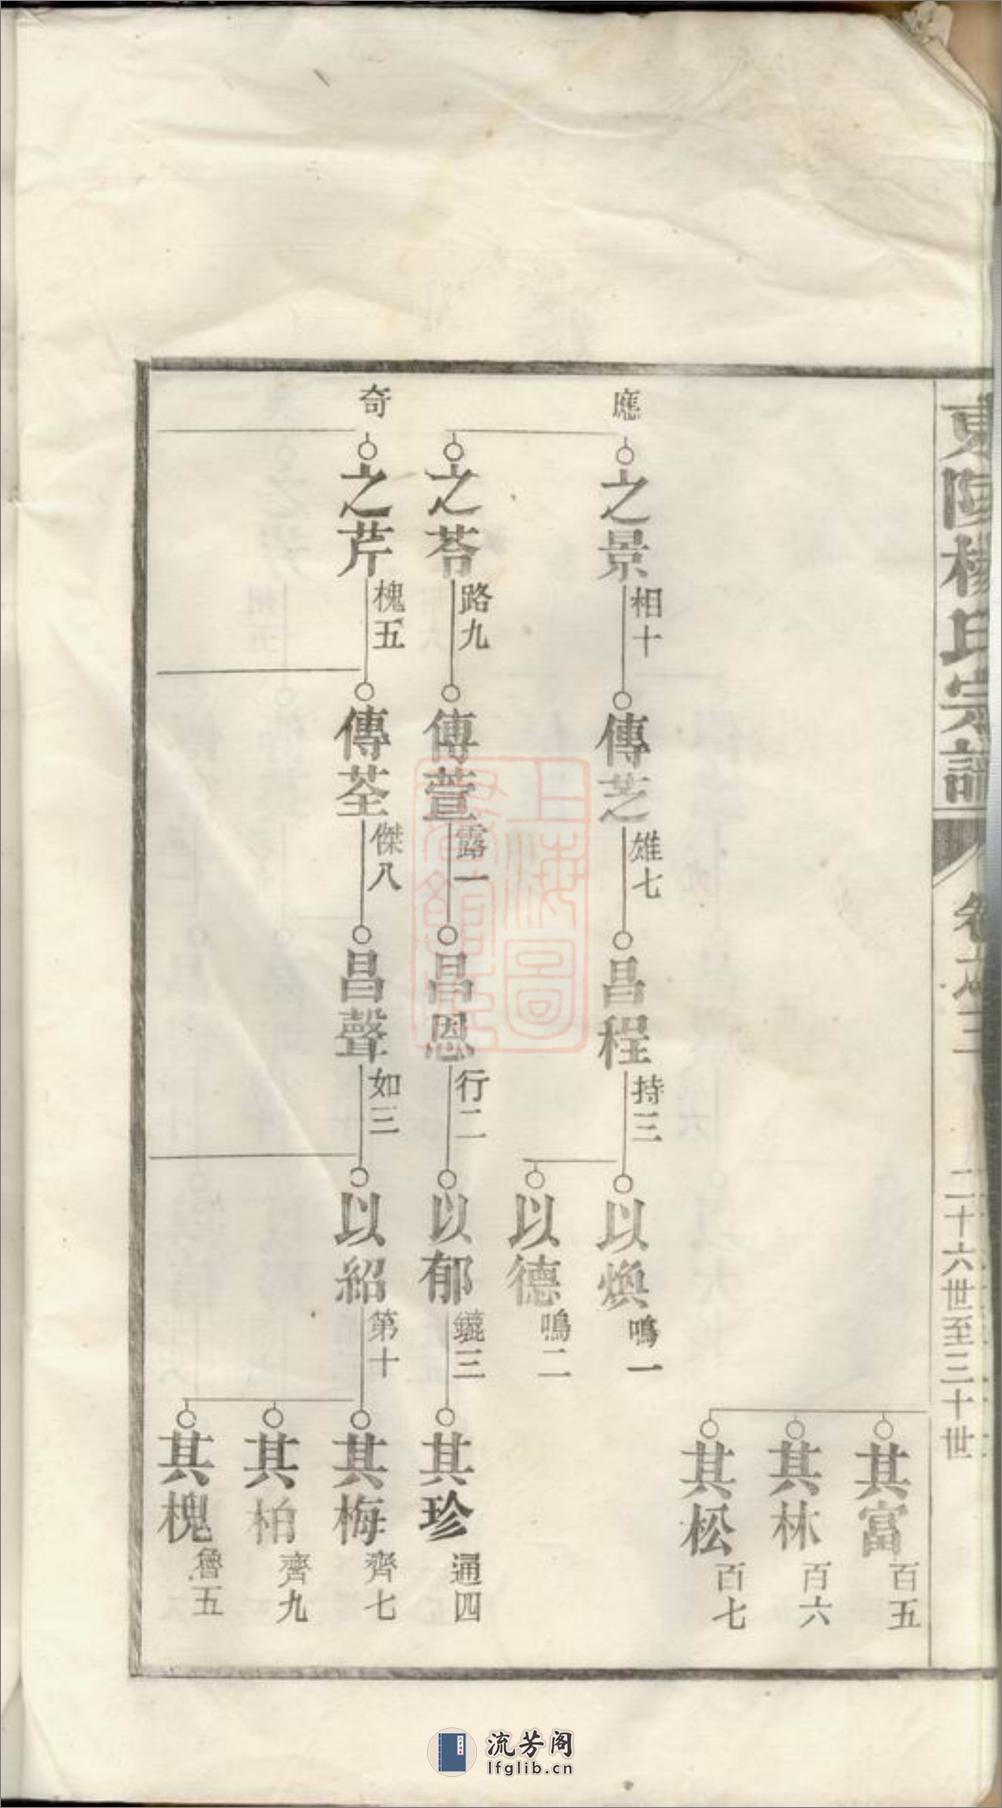 東陽楊氏宗譜
卷之三
二十六世至三十世
其富
百五
其林
百六
其松
百七
應
之景
相十
傳芝
雄七
昌程
持三
以煥
鳴一
以德
鳴二
之苓
路九
傳萱
露一
昌恩
行二
以郁
鑣三
其珍
通四
奇
之芹
槐五
傳荃
傑八
昌聲
如三
以紹
第十
其梅
齊七
其柏
齊九
其槐
魯五
上海圖
書館藏
流芳阁
lfglib.cn